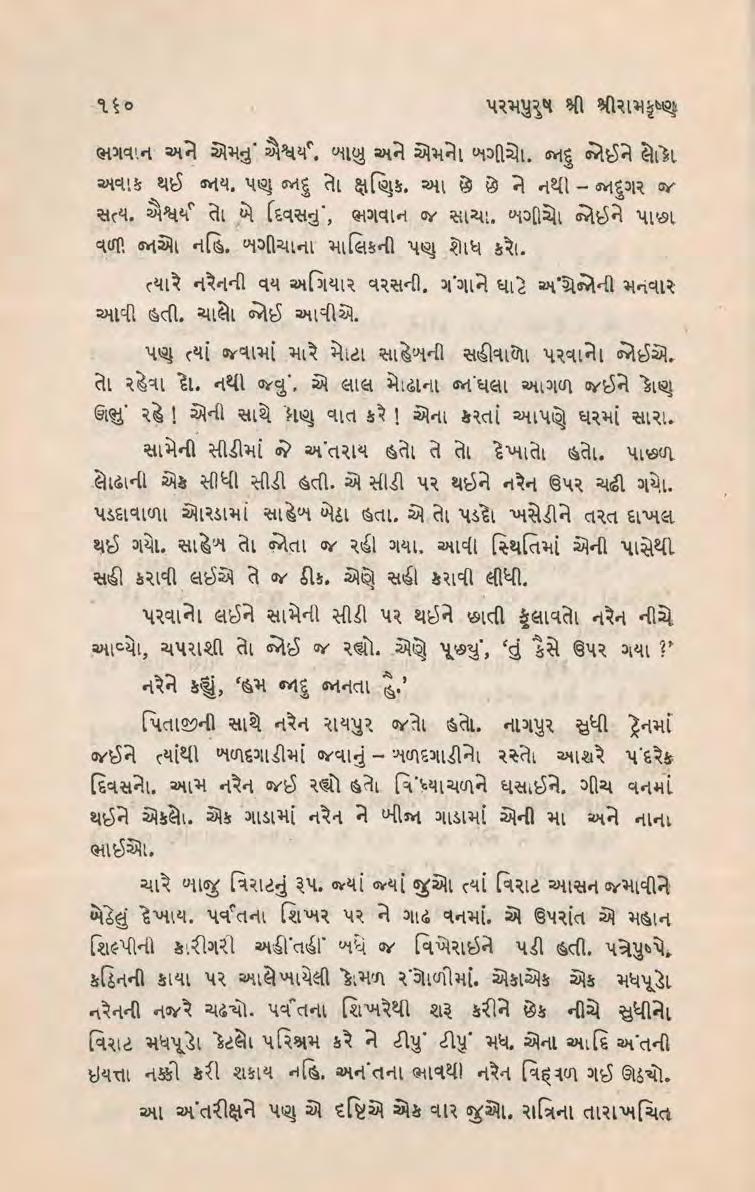 ૧૬૦ પરમપુરુષ શ્રી શ્રીરામકૃષ્ણ
ભગવાન અને એમનું ઐશ્વર્ય. બાબુ અને એમનો બગીચો. જાદુ જોઈને લોકો
અવાક થઈ જાય. પણ જાદુ તો ક્ષણિક. આ છે છે ને નથી – જાદુગર જ
સત્ય. ઐશ્વર્ય તો બે દિવસનું, ભગવાન જ સાચા. બગીચો જોઈને પાછા
વળી જાઓ નહિ. બગીચાના માલિકની પણ શોધ કરો.
ત્યારે નરેનની વય અગિયાર વરસની. ગંગાને ઘાટે અંગ્રેજોની મનવાર
આવી હતી. ચાલો જોઈ આવીએ.
પણ ત્યાં જવામાં મારે મોટા સાહેબની સહીવાળો પરવાનો જોઈએ.
તો રહેવા દો. નથી જવું. એ લાલ મોઢાના જાંઘલા આગળ જઈને કોણ
ઊભું રહે ! એની સાથે કોણ વાત કરે ! એના કરતાં આપણે ઘરમાં સારા.
સામેની સીડીમાં જે અંતરાય હતો તે તો દેખાતો હતો. પાછળ
લોઢાની એક સીધી સીડી હતી. એ સીડી પર થઈને નરેન ઉપર ચઢી ગયો.
પડદાવાળા ઓરડામાં સાહેબ બેઠા હતા. એ તો પડદો ખસેડીને તરત દાખલ
થઈ ગયો. સાહેબ તો જોતા જ રહી ગયા. આવી સ્થિતિમાં એની પાસેથી
સહી કરાવી લઈએ તે જ ઠીક. એણે સહી કરાવી લીધી.
પરવાનો લઈને સામેની સીડી પર થઈને છાતી ફુલાવતો નરેન નીચે
આવ્યો, ચપરાશી તો જોઈ જ રહ્યો. એણે પૂછ્યું, ‘તું કૈસે ઉપર ગયા ?’
નરેને કહ્યું, ‘હમ જાદુ જાનતા હૈ.’
પિતાજીની સાથે નરેન રાયપુર જતો હતો. નાગપુર સુધી ટ્રેનમાં
જઈને ત્યાંથી બળદગાડીમાં જવાનું – બળદગાડીનો રસ્તો આશરે પંદરેક
દિવસનો. આમ નરેન જઈ રહ્યો હતો વિંધ્યાચળને ઘસાઈને. ગીચ વનમાં
થઈને એકલો. એક ગાડામાં નરેન ને બીજા ગાડામાં એની મા અને નાના
ભાઈઓ.
ચારે બાજુ વિરાટનું રૂપ. જ્યાં જ્યાં જુઓ ત્યાં વિરાટ આસન જમાવીને
બેઠેલું દેખાય. પર્વતના શિખર પર ને ગાઢ વનમાં. એ ઉપરાંત એ મહાન
શિલ્પીની કારીગરી અહીંતહીં બધે જ વિખેરાઈને પડી હતી. પત્રેપુષ્પે,
કઠિનની કાયા પર આલેખાયેલી કોમળ રંગોળીમાં. એકાએક એક મધપૂડો
નરેનની નજરે ચઢચો. પર્વતના શિખરેથી શરૂ કરીને છેક નીચે સુધીનો
વિરાટ મધપૂડો કેટલો પરિશ્રમ કરે ને ટીપું ટીપું મધ. એના આદિ અંતની
ઇયત્તા નક્કી કરી શકાય નહિ. અનંતના ભાવથી નરેન વિહ્વળ ગઈ ઊઠચો.
આ અંતરીક્ષને પણ એ દૃષ્ટિએ એક વાર જુઓ. રાત્રિના તારાખચિત